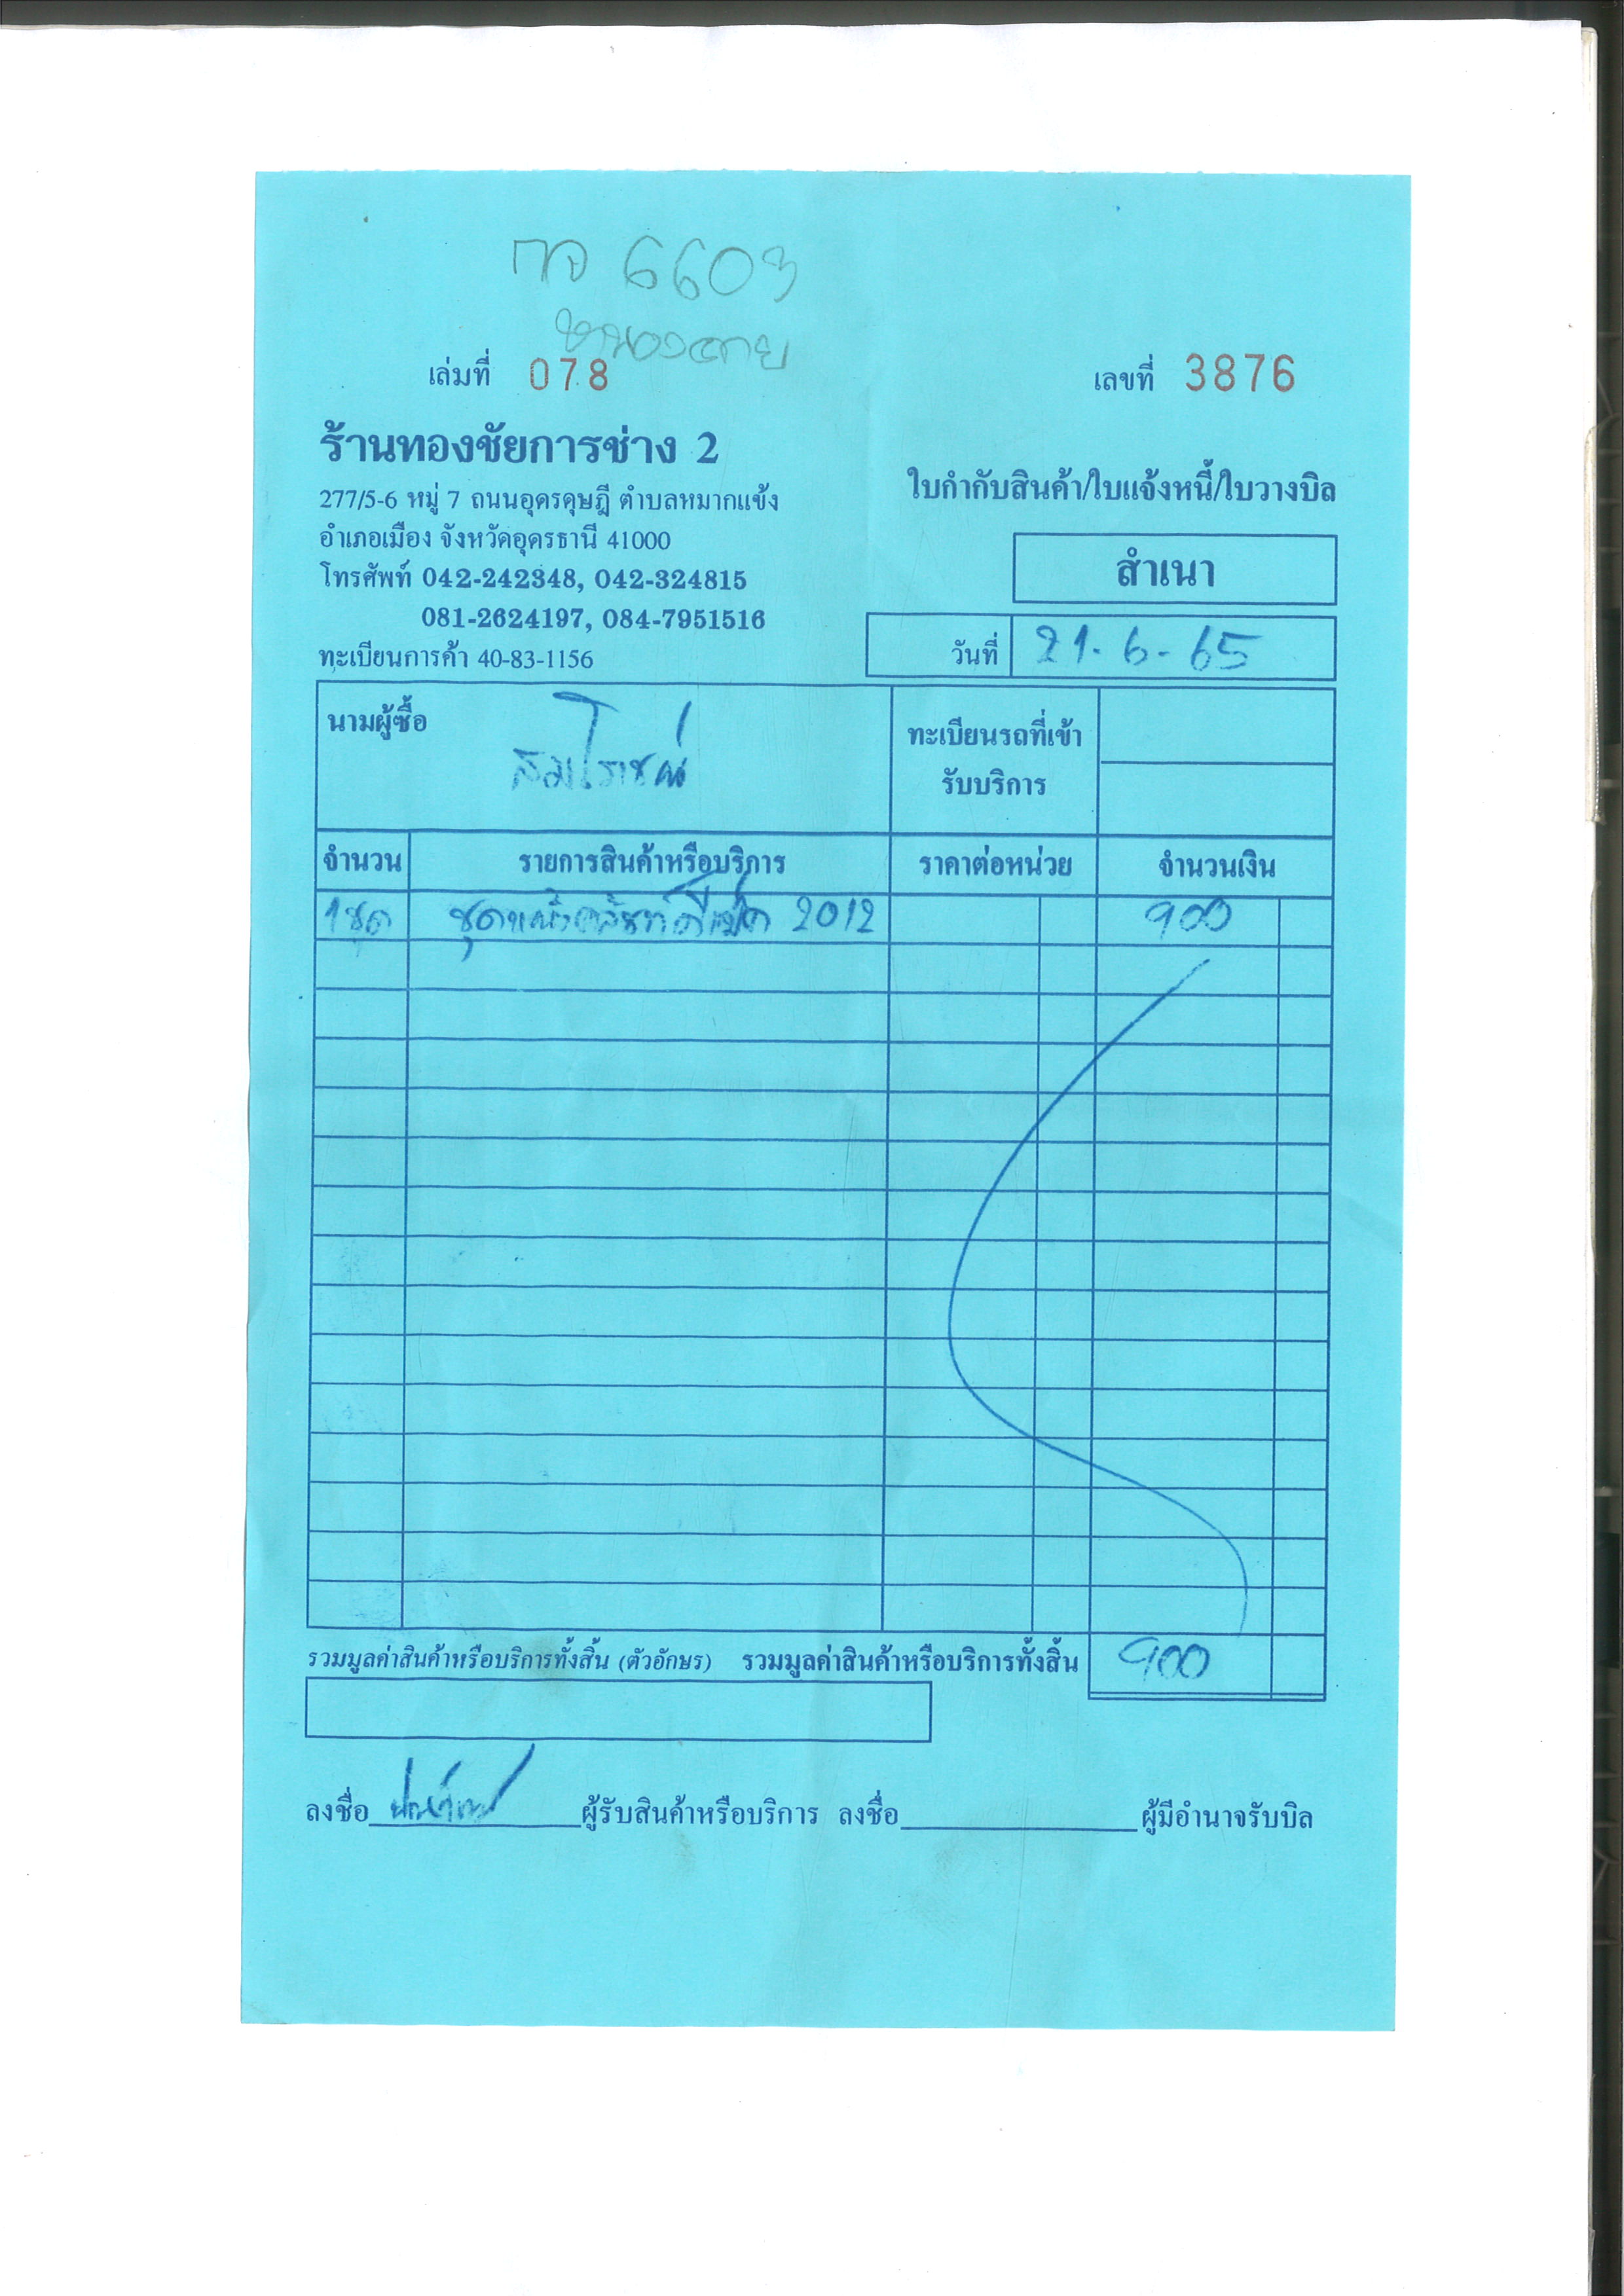 กจ 6603
เล่มที่ 078
เลขที่ 3876
ร้านทองชัยการช่าง 2
277/5-6 หมู่ 7 ถนนอุดรดุษฎี ตำบลหมากแข้ง
อำเภอเมือง จังหวัดอุดรธานี 41000
โทรศัพท์ 042-242348, 042-324815
081-2624197, 084-7951516
ทะเบียนการค้า 40-83-1156
ใบกำกับสินค้า/ใบแจ้งหนี้/ใบวางบิล
สำเนา
วันที่ 21-6-65
นามผู้ซื้อ สิมโรชน์
ทะเบียนรถที่เข้า
รับบริการ
จำนวน รายการสินค้าหรือบริการ ราคาต่อหน่วย จำนวนเงิน
1ชุด 2012 900
รวมมูลค่าสินค้าหรือบริการทั้งสิ้น (ตัวอักษร) รวมมูลค่าสินค้าหรือบริการทั้งสิ้น 900
ลงชื่อ ผู้รับสินค้าหรือบริการ ลงชื่อ ผู้มีอำนาจรับบิล